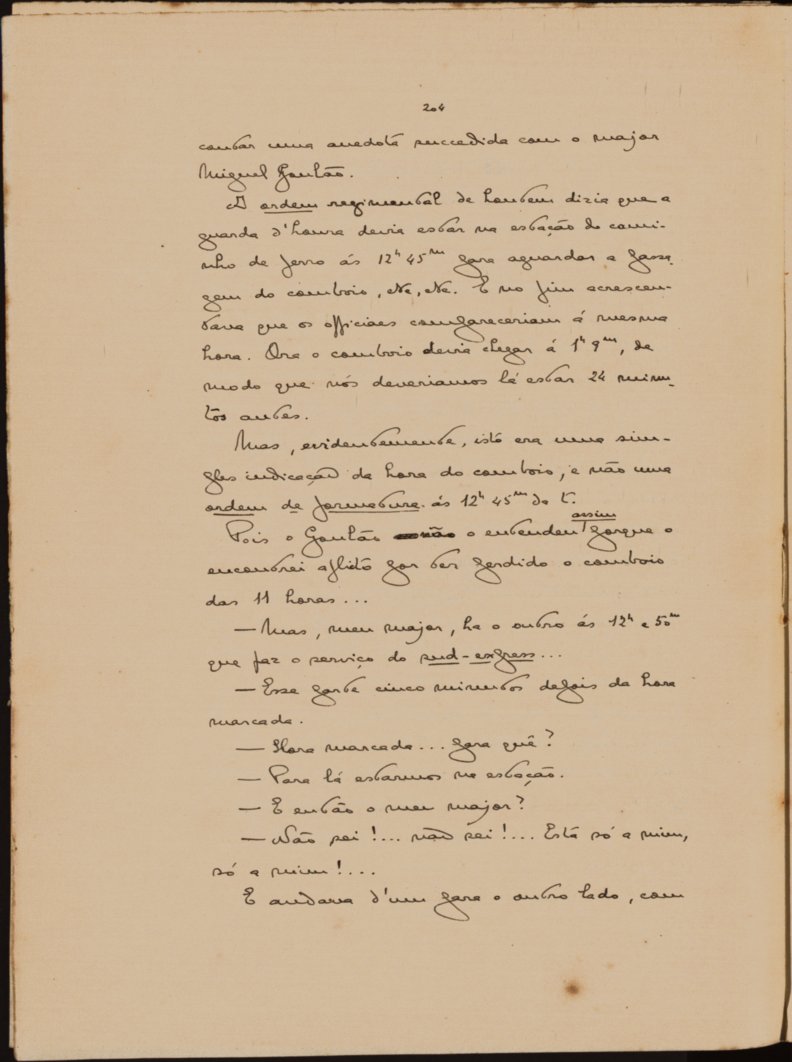 204
contar uma anedota succedida com o major
Miguel Goulão.
A ordem regimental de hontem dizia que a
guarda d'honra devia estar na estação do cami-
nho de ferro ás 12h 45m para aguardar a passa-
gem do comboio, etc, etc. E no fim acrescen-
tava que os officiaes compareceriam á mesma
hora. Ora o comboio devia chegar á 1h 9m, de
modo que nós deveriamos lá estar 24 minu-
tos antes.
Mas, evidentemente, isto era uma sim-
ples indicação da hora do comboio, e não uma
ordem de formatura ás 12h 45m da t.
Pois o Goulão o entendeu assim porque o
encontrei aflito por ter perdido o comboio
das 11 horas...
— Mas, meu major, ha o outro ás 12h e 50m
que faz o serviço do sud-express...
— Esse parte cinco minutos depois da hora
marcada.
— Hora marcada... para quê?
— Para lá estarmos na estação.
— E então o meu major?
— Não sei!... não sei!... Está só a mim,
só a mim!...
E andava d'um para o outro lado, com